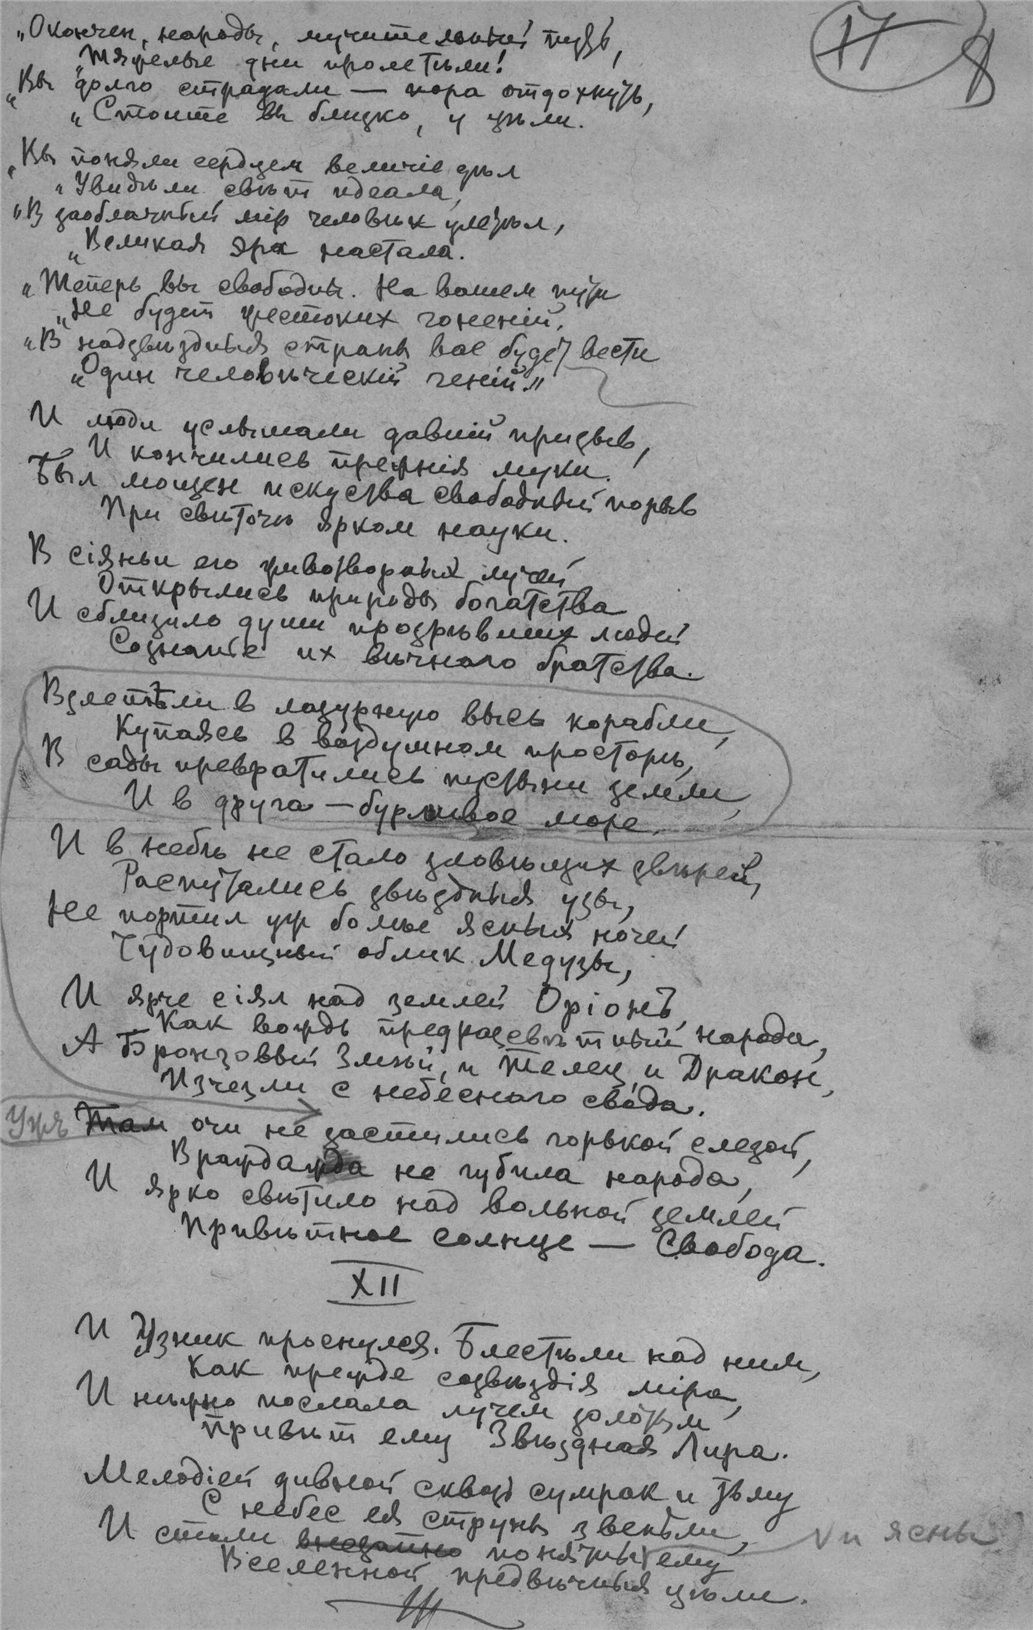 17 8
„Окончен, народы, мучительный путь,
„Тяжелые дни пролетѣли!
„Вы долго страдали — пора отдохнуть,
„Стоите вы близко у цѣли.
„Вы поняли сердцем величіе дѣл
„Увидѣли свѣт идеала,
„В заоблачный мір человѣк улетѣл,
„Великая эра настала.
„Теперь вы свободны. На вашем пути
„Не будет жестоких гоненій,
„В надзвѣздныя страны вас будет вести
„Один человѣческій геній."
И люди услышали давній призыв,
И кончились прежнія муки.
Был мощен искуства свободный порыв
При свѣточѣ ярком науки.
В сіяньи его животворных лучей
Открылись природы богатства
И сблизило души прозрѣвших людей
Сознаніе их вѣчнаго братства.
Взлетѣли в лазурную высь корабли,
Купаясь в воздушном просторѣ,
В сады превратились пустыни земли,
И в друга — бурливое море.
И в небѣ не стало зловѣщих звѣрей,
Распутались звѣздныя узы,
Не портил уж больше ясных ночей
Чудовищный облик Медузы,
И ярче сіял над землей Оріонъ,
Как вождь предразсвѣтный народа,
А Бронзовый Змѣй, и Телец, и Дракон,
Изчезли с небеснаго свода.
Ужъ Там очи не застились горькой слезой,
Вражда не губила народа,
И ярко свѣтило над вольной землей
Привѣтное солнце — Свобода.
XII
И Узник проснулся. Блестѣли над ним,
Как прежде созвѣздія міра,
И нѣжно послала лучем золотым
Привѣт ему Звѣздная Лира.
Мелодіей дивной сквозь сумрак и тьму
С небес ея струны звенѣли,
И стали внезапно понятны ему √ и ясны
Вселенной предвѣчныя цѣли.